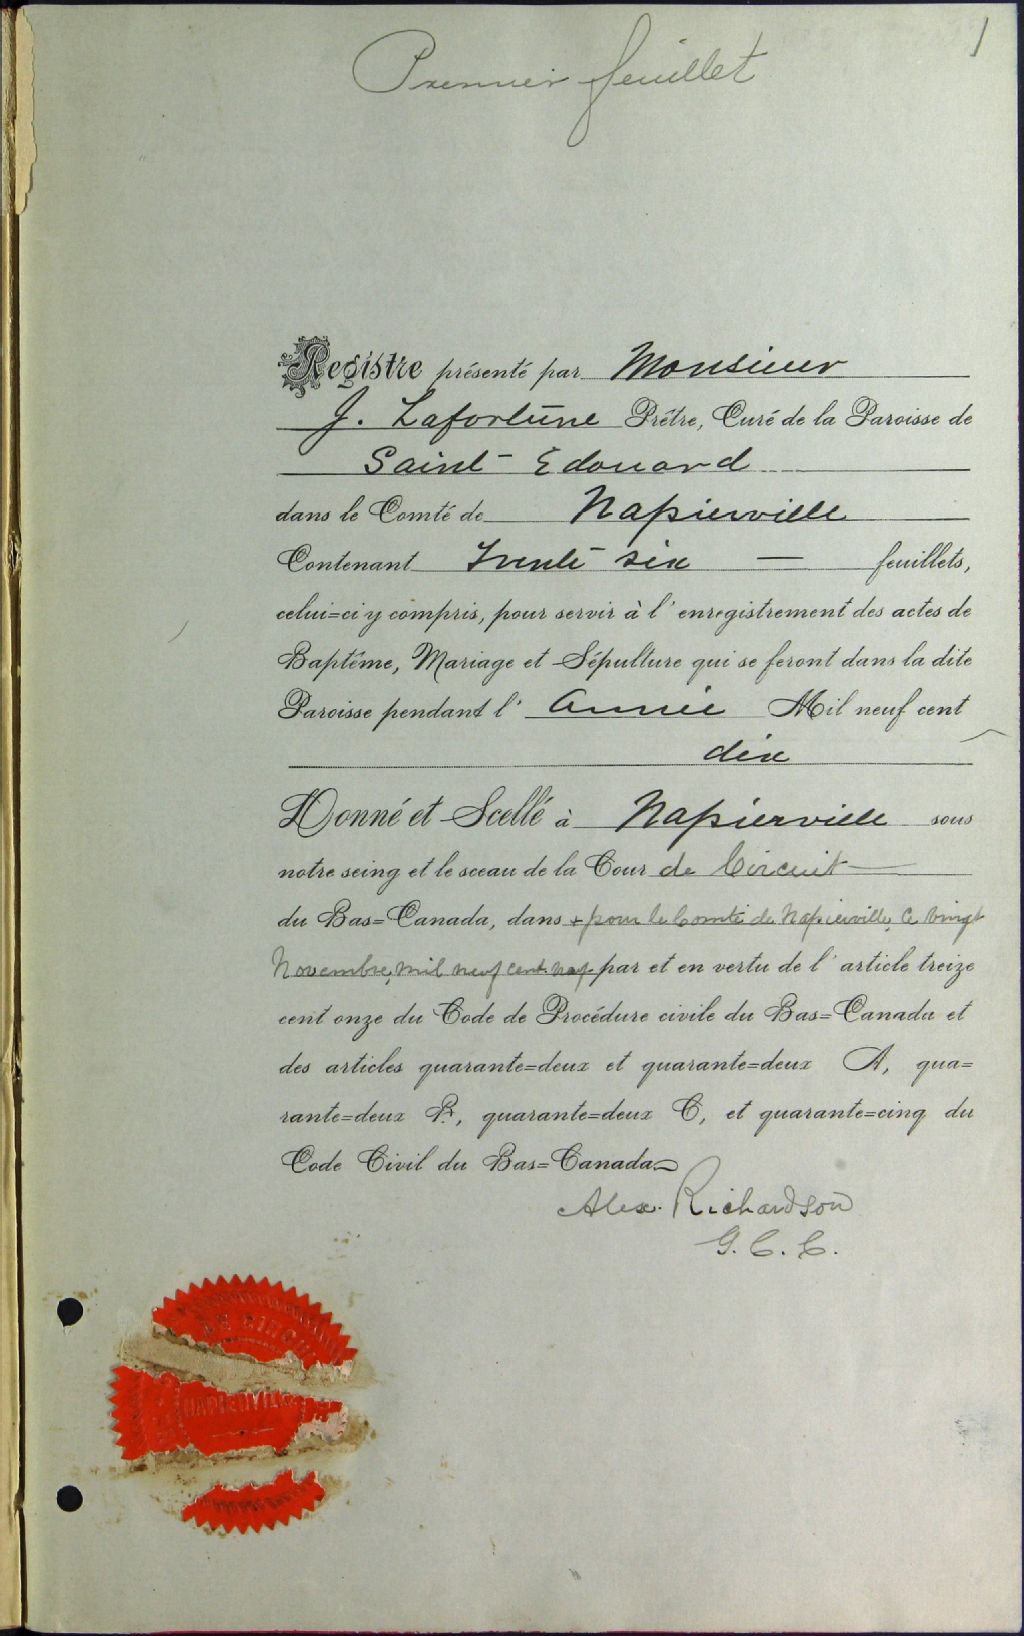 1
Premier feuillet
Registre présenté par Monsieur
J. Lafortune Prêtre, Curé de la Paroisse de
Saint-Edouard
dans le Comté de Napierville
Contenant Trente six — feuillets,
celui=ci y compris, pour servir à l'enregistrement des actes de
Baptême, Mariage et Sépulture qui se feront dans la dite
Paroisse pendant l'Année Mil neuf cent
dix
Donné et Scellé à Napierville sous
notre seing et le sceau de la Cour de Circuit
du Bas=Canada, dans & pour le Comté de Napierville, ce vingt
Novembre, mil neuf cent neuf par et en vertu de l'article treize
cent onze du Code de Procédure civile du Bas=Canada et
des articles quarante=deux et quarante=deux A, qua=
rante=deux B, quarante=deux C, et quarante=cinq du
Code Civil du Bas=Canada
Alex. Richardson
G. C. C.
DE CIRCUI
NAPIERVILLE